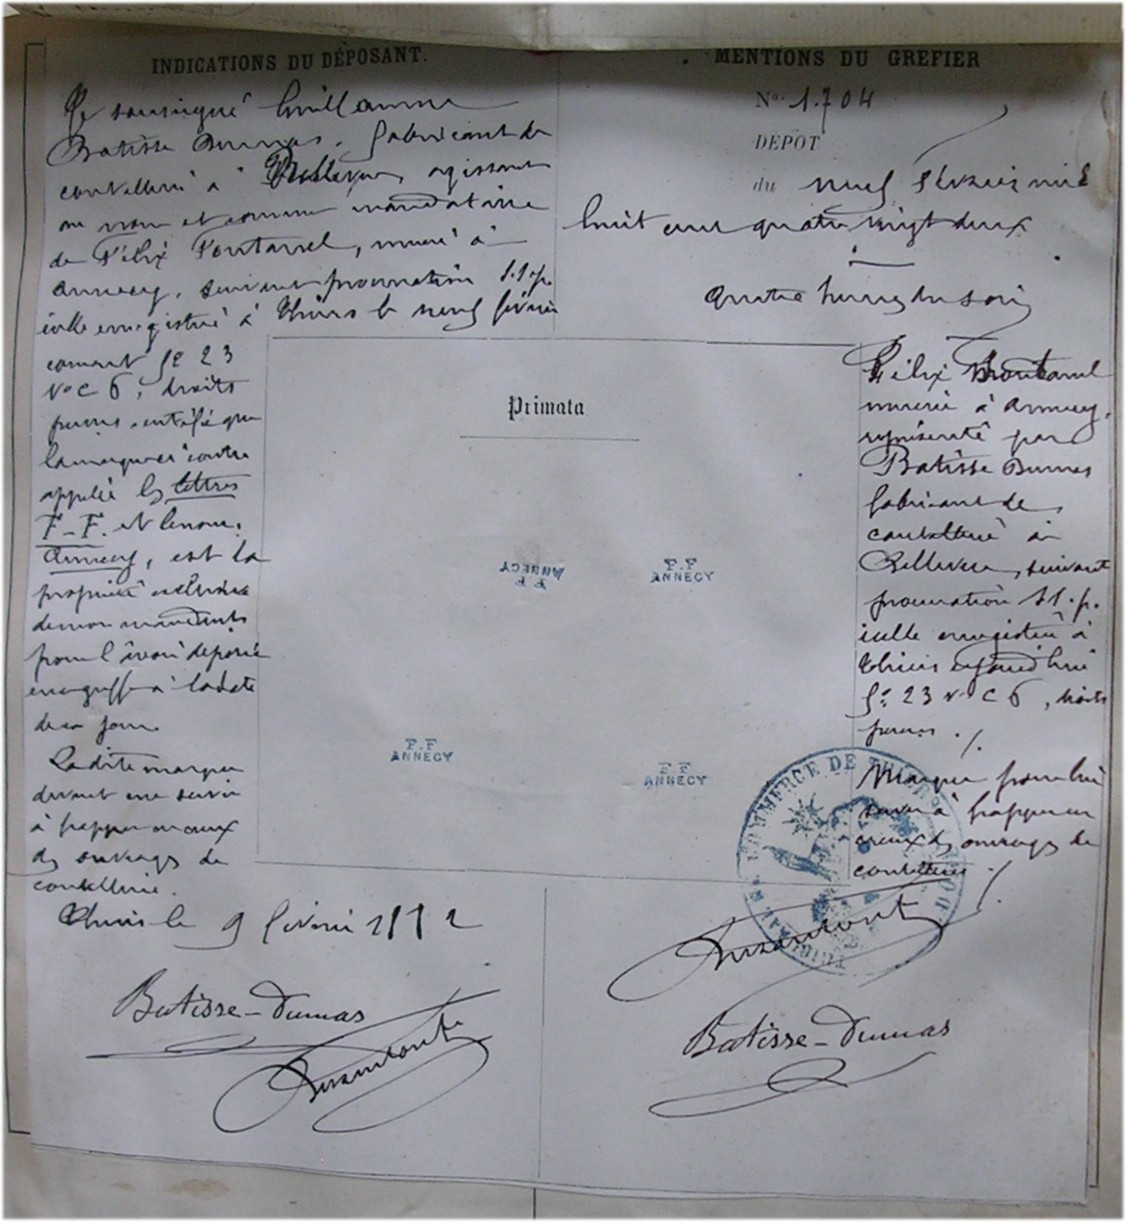 INDICATIONS DU DÉPOSANT.
Je soussigné Guillaume
Batisse Dumas, fabricant de
coutellerie à Bellevue, agissant
au nom et comme mandataire
de Félix Fontanel, à
Annecy, suivant procuration S.S.p.
icelle enregistrée à Thiers le neuf février
courant f° 23
V° C 6, droits
perçus, certifie que
la marque ci contre
appelée les lettres
F-F. et le nom
Annecy, est la
propriété exclusive
de mon mandant
pour l'avoir déposée
en greffe à la date
de ce jour.
La dite marque
devant me servir
à frapper en creux
des ouvrages de
coutellerie.
Thiers le 9 février 1882
Batisse-Dumas
MENTIONS DU GREFIER
No. 1.704
DÉPOT
du neuf février mil
huit cent quatre vingt deux
quatre heures du soir
Primata
ANNECY
F F
F.F
ANNECY
F.F
ANNECY
F F
ANNECY
Félix
à Annecy,
représenté par
Batisse Dumas
fabricant de
coutellerie à
Bellevue, suivant
procuration S S.p.
icelle enregistrée à
Thiers aujourd'hui
f° 23 V° C 6, droits
perçus ./.
Marque pour lui
servir à frapper en
creux des ouvrages de
coutellerie ./.
COMMERCE DE THIERS
TRIBUNAL
Batisse-Dumas